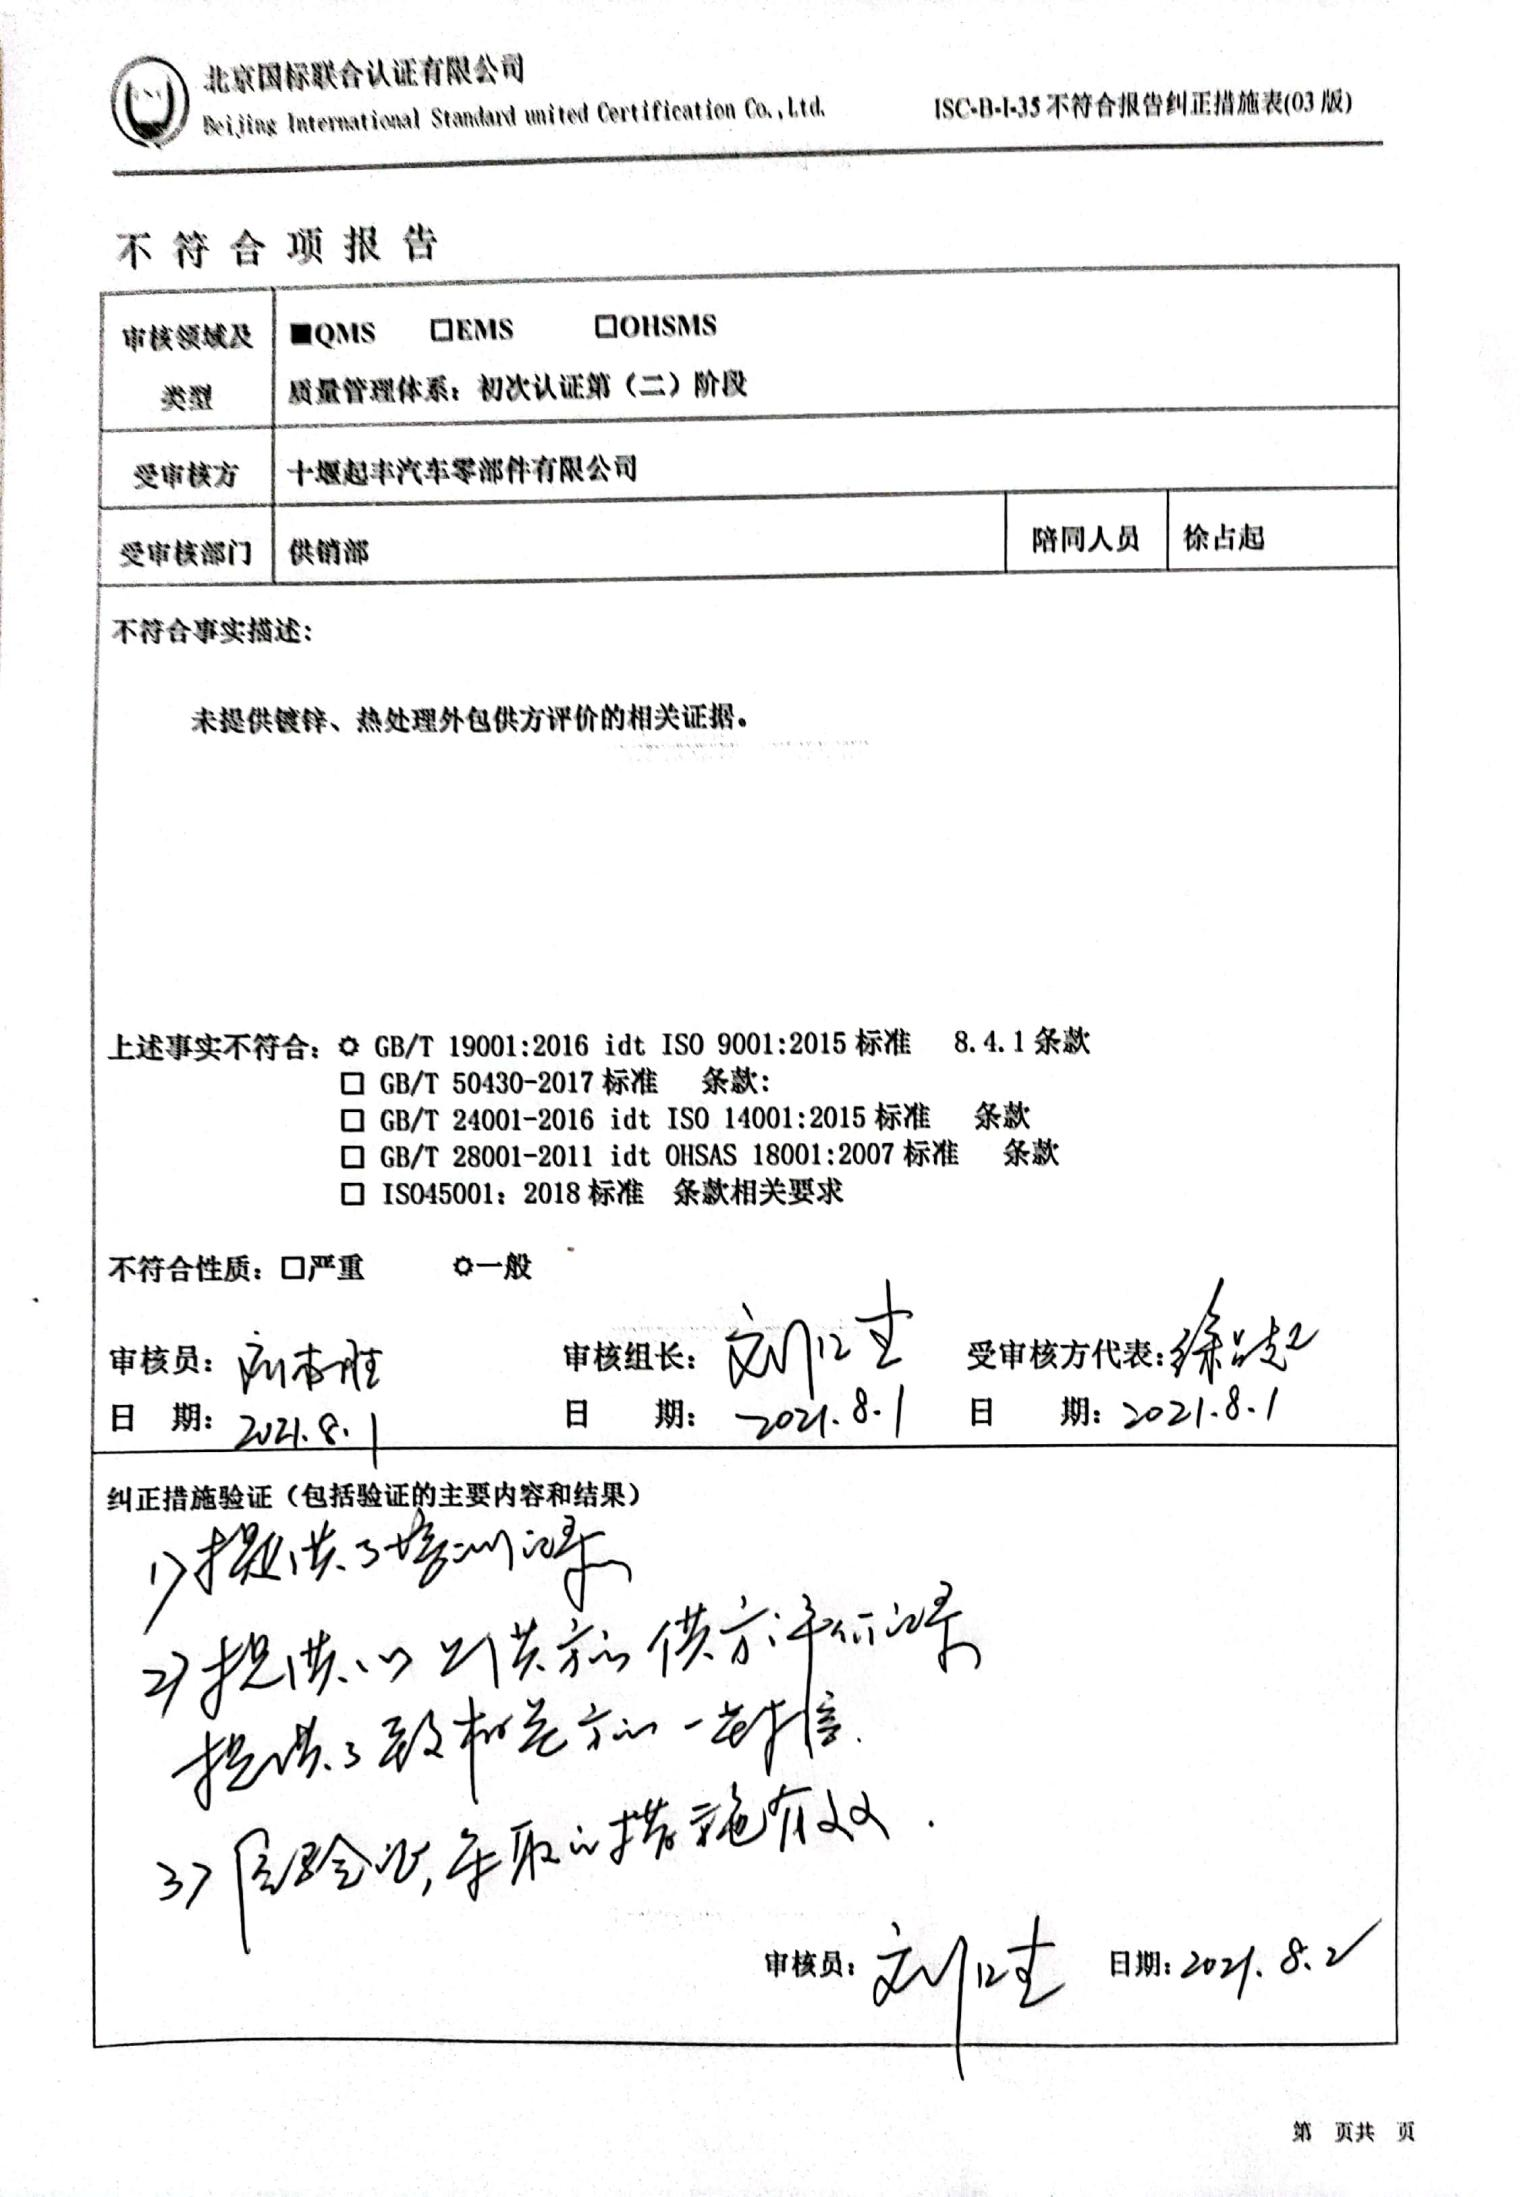 北京国标联合认证有限公司
Beijing International Standard united Certification Co.,Ltd.
ISC-B-I-35 不符合报告纠正措施表(03 版)
不符合项报告
审核领域及类型
■QMS □EMS □OHSMS
质量管理体系：初次认证第（二）阶段
受审核方
十堰起丰汽车零部件有限公司
受审核部门
供销部
陪同人员
徐占起
不符合事实描述：
未提供镀锌、热处理外包供方评价的相关证据。
上述事实不符合：✿ GB/T 19001:2016 idt ISO 9001:2015 标准 8.4.1 条款
□ GB/T 50430-2017 标准 条款：
□ GB/T 24001-2016 idt ISO 14001:2015 标准 条款
□ GB/T 28001-2011 idt OHSAS 18001:2007 标准 条款
□ ISO45001：2018 标准 条款相关要求
不符合性质：□严重 ✿一般
审核员：
审核组长：
受审核方代表：徐占起
日 期：2021.8.1
日 期：2021.8.1
日 期：2021.8.1
纠正措施验证（包括验证的主要内容和结果）
1）提供了培训记录
2）提供 供方的供方评价记录
提供了 相关方的一
3） 验证，采取的措施有效.
审核员：
日期：2021.8.2
第 页共 页